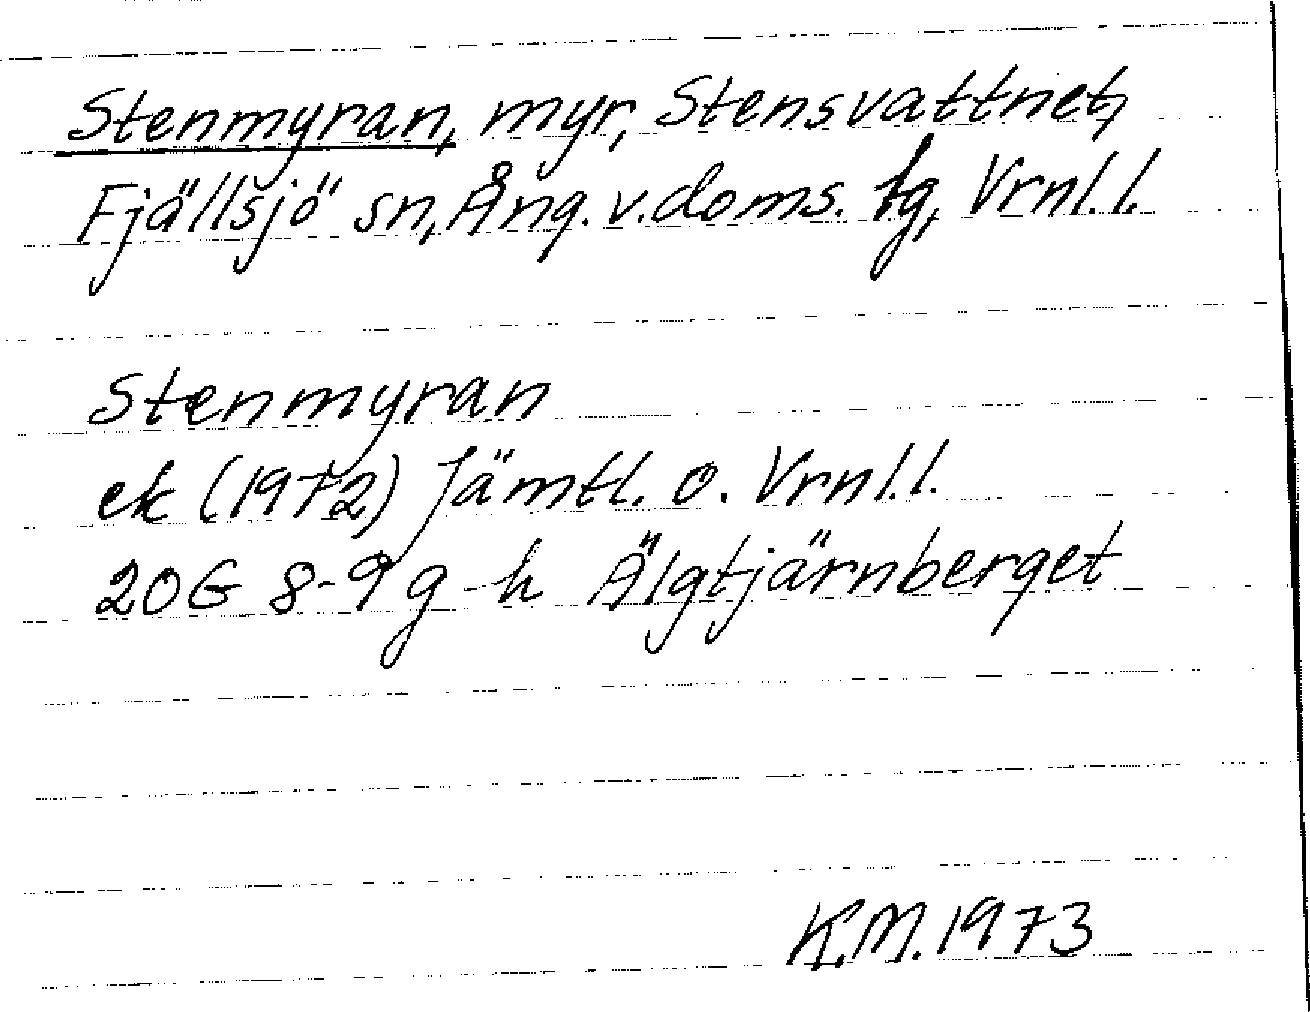 Stenmyran, myr, Stensvattnet,
Fjällsjö sn, Ång. v. doms. tg, Vrnl. l.
Stenmyran
ek (1972) Jämtl. o. Vrnl. l.
20G 8-9 g-h Älgtjärnberget
K.M. 1973